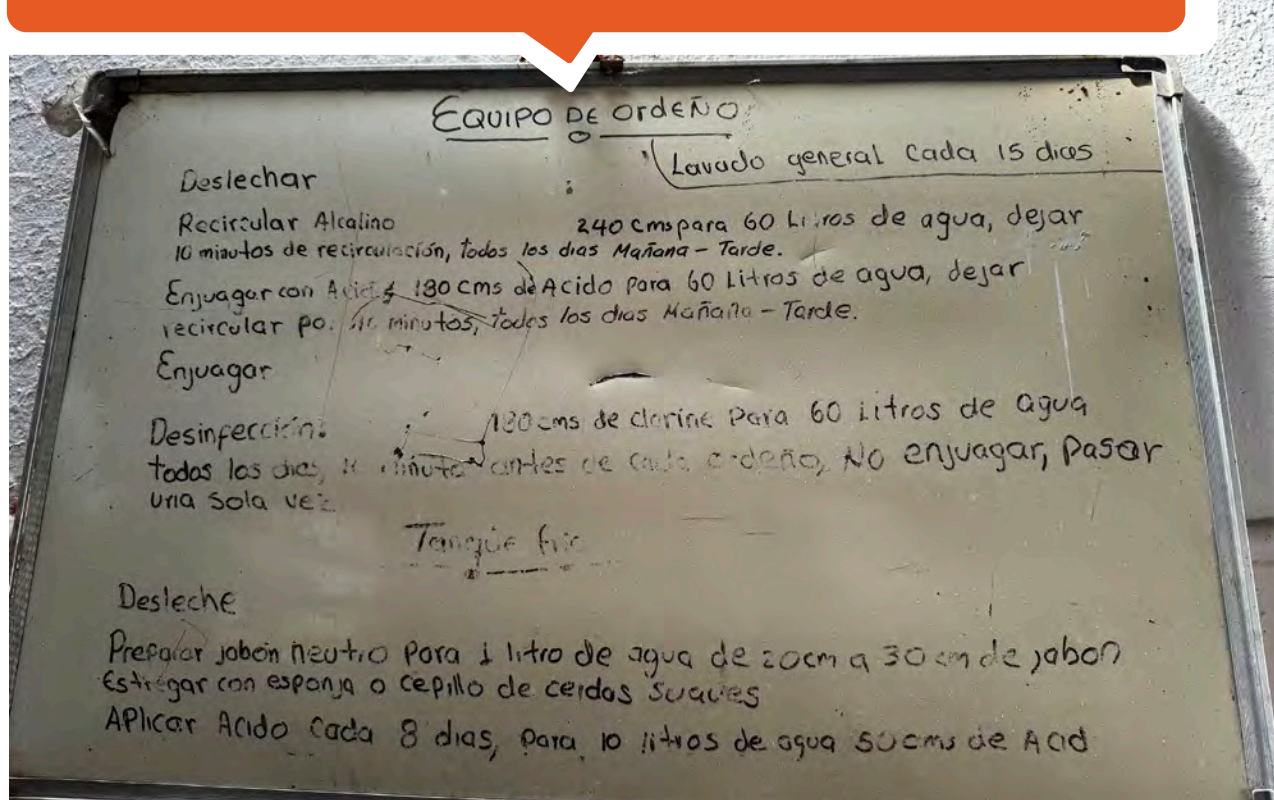 EQUIPO DE OrdEÑO
Lavado general Cada 15 dias
Deslechar
Recircular Alcalino 240 cms para 60 Litros de agua, dejar
10 minutos de recirculación, todos los dias Mañana - Tarde.
Enjuagar con 180 cms de Acido para 60 Litros de agua, dejar
recircular por minutos, todos los dias Mañana - Tarde.
Enjuagar
Desinfección: 180 cms de clorine para 60 Litros de agua
todos los dias, minuto antes de cada ordeño, NO enjuagar, Pasar
una sola vez
Tanque frio
Desleche
Preparar jabon neutro para 1 litro de agua de 20cm a 30 cm de jabon
Estregar con esponja o cepillo de cerdas suaves
APlicar Acido Cada 8 dias, para 10 litros de agua 50cms de Acid